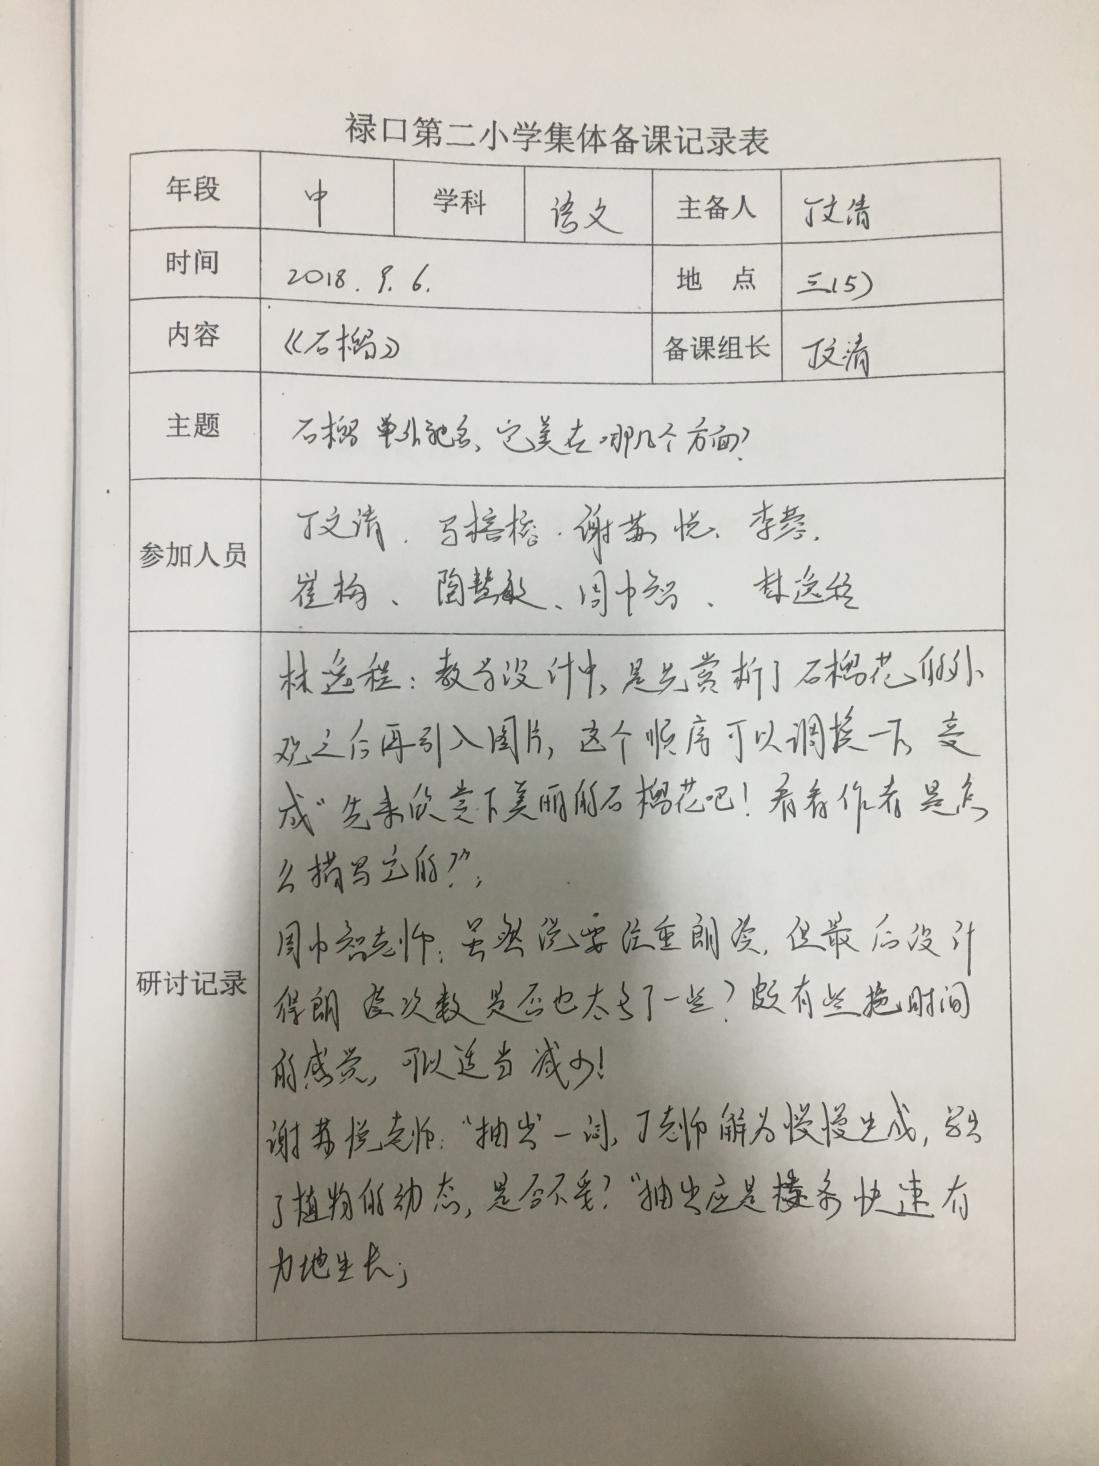 禄口第二小学集体备课记录表
年段 中 学科 语文 主备人 丁文清
时间 2018.9.6. 地 点 三(5)
内容 《石榴》 备课组长 丁文清
主题 石榴 它美在哪几个方面?
参加人员
丁文清、谢苏悦、李蓉、
崔梅、陶慧敏、周巾智、林逸程
研讨记录
林逸程:教学设计中,是先赏析了石榴花的外
观之后再引入图片,这个顺序可以调换一下,变
成“先来欣赏下美丽的石榴花吧!看看作者是怎
么描写它的?”;
周巾智老师:虽然说要注重朗读,但最后设计
得朗读次数是否也太多了一些?颇有些拖时间
的感觉,可以适当减少!
谢苏悦老师:“抽出”一词,丁老师解为慢慢生成,写出
了植物的动态,是否不妥?“抽出应是枝条快速有
力地生长;